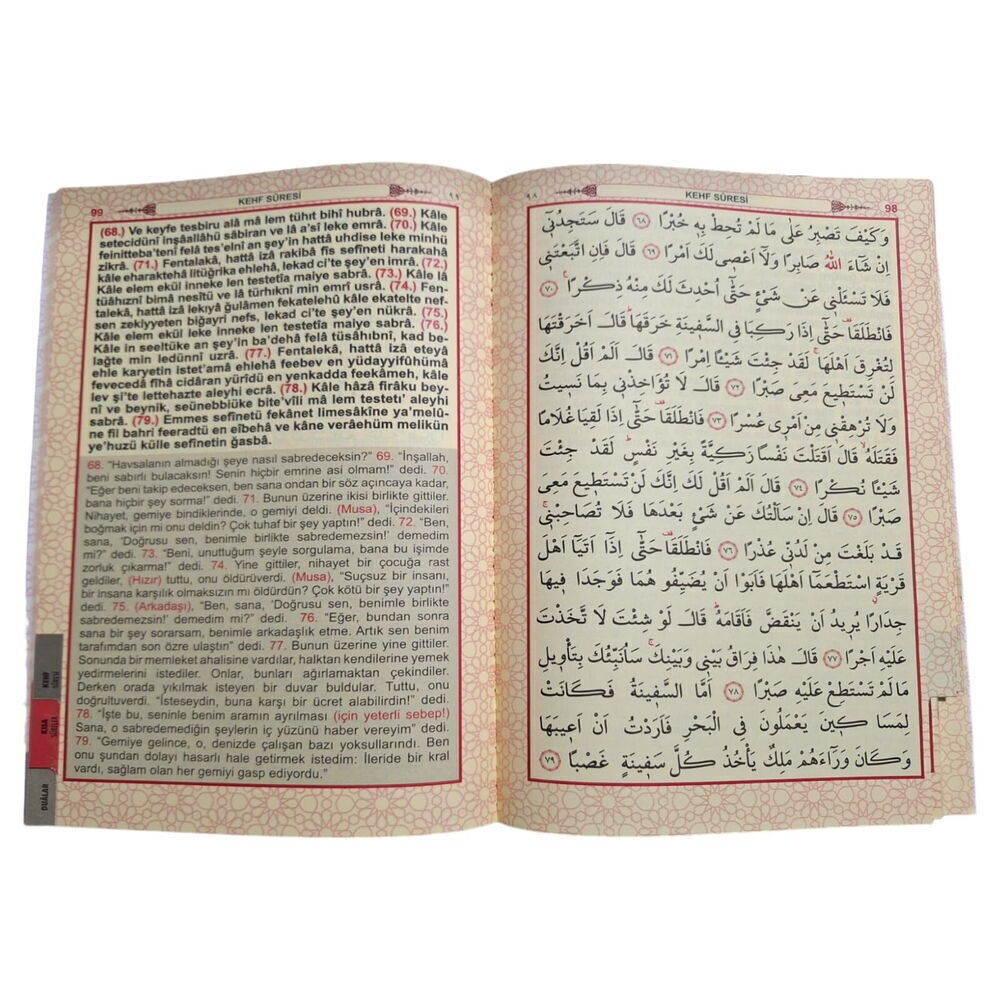 99
KEHF SÛRESİ
٩٩
(68.) Ve keyfe tesbiru alâ mâ lem tühıt bihî hubrâ. (69.) Kâle
setecidünî inşâallâhü sâbiran ve lâ a'sî leke emrâ. (70.) Kâle
feinitteba'tenî felâ tes'elnî an şey'in hattâ uhdise leke minhü
zikrâ. (71.) Fentalakâ, hattâ izâ rakibâ fis sefîneti harakahâ
kâle eharaktehâ litüğrika ehlehâ, lekad ci'te şey'en imrâ. (72.)
Kâle elem ekül inneke len testetîa maiye sabrâ. (73.) Kâle lâ
tüâhıznî bimâ nesîtü ve lâ türhıknî min emrî usrâ. (74.) Fen-
talekâ, hattâ izâ lekıyâ ğulâmen fekatelehû kâle ekatelte nef-
sen zekiyyeten biğayri nefs, lekad ci'te şey'en nükrâ. (75.)
Kâle elem ekül leke inneke len testetîa maiye sabrâ. (76.)
Kâle in seeltüke an şey'in ba'dehâ felâ tüsâhıbnî, kad be-
lağte min ledünnî uzrâ. (77.) Fentalekâ, hattâ izâ eteyâ
ehle karyetin istet'amâ ehlehâ feebev en yüdayyifûhümâ
fevecedâ fîhâ cidâran yürîdü en yenkadda feekâmeh, kâle
lev şi'te lettehazte aleyhi ecrâ. (78.) Kâle hâzâ firâku bey-
nî ve beynik, seünebbiüke bite'vîli mâ lem testetı' aleyhi
sabrâ. (79.) Emmes sefînetü fekânet limesâkîne ya'melû-
ne fil bahri feeradtü en eîbehâ ve kâne verâehüm melikün
ye'huzü külle sefînetin ğasbâ.
68. "Havsalanın almadığı şeye nasıl sabredeceksin?" 69. "İnşallah,
beni sabırlı bulacaksın! Senin hiçbir emrine asi olmam!" dedi. 70.
"Eğer beni takip edeceksen, ben sana ondan bir söz açıncaya kadar,
bana hiçbir şey sorma!" dedi. 71. Bunun üzerine ikisi birlikte gittiler.
Nihayet, gemiye bindiklerinde, o gemiyi deldi. (Musa), "İçindekileri
boğmak için mi onu deldin? Çok tuhaf bir şey yaptın!" dedi. 72. "Ben,
sana, 'Doğrusu sen, benimle birlikte sabredemezsin!' demedim
mi?" dedi. 73. "Beni, unuttuğum şeyle sorgulama, bana bu işimde
zorluk çıkarma!" dedi. 74. Yine gittiler, nihayet bir çocuğa rast
geldiler, (Hızır) tuttu, onu öldürüverdi. (Musa), "Suçsuz bir insanı,
bir insana karşılık olmaksızın mı öldürdün? Çok kötü bir şey yaptın!"
dedi. 75. (Arkadaşı), "Ben, sana, 'Doğrusu sen, benimle birlikte
sabredemezsin!' demedim mi?" dedi. 76. "Eğer, bundan sonra
sana bir şey sorarsam, benimle arkadaşlık etme. Artık sen benim
tarafımdan son özre ulaştın" dedi. 77. Bunun üzerine yine gittiler.
Sonunda bir memleket ahalisine vardılar, halktan kendilerine yemek
yedirmelerini istediler. Onlar, bunları ağırlamaktan çekindiler.
Derken orada yıkılmak isteyen bir duvar buldular. Tuttu, onu
doğrultuverdi. "İsteseydin, buna karşı bir ücret alabilirdin!" dedi.
78. "İşte bu, seninle benim aramın ayrılması (için yeterli sebep!)
Sana, o sabredemediğin şeylerin iç yüzünü haber vereyim" dedi.
79. "Gemiye gelince, o, denizde çalışan bazı yoksullarındı. Ben
onu şundan dolayı hasarlı hale getirmek istedim: İleride bir kral
vardı, sağlam olan her gemiyi gasp ediyordu."
KEHF
SÛRESİ
KISA
SÛRELER
DUÂLAR
٩٨
KEHF SÛRESİ
98
وَكَيْفَ تَصْبِرُ عَلٰى مَا لَمْ تُحِطْ بِهٖ خُبْرًا ﴿٦٨﴾ قَالَ سَتَجِدُنٖٓى
اِنْ شَٓاءَ اللّٰهُ صَابِرًا وَلَٓا اَعْصٖى لَكَ اَمْرًا ﴿٦٩﴾ قَالَ فَاِنِ اتَّبَعْتَنٖى
فَلَا تَسْئَلْنٖى عَنْ شَیْءٍ حَتّٰٓى اُحْدِثَ لَكَ مِنْهُ ذِكْرًا ۟ ﴿٧٠﴾
فَانْطَلَقَا۠ حَتّٰٓى اِذَا رَكِبَا فِى السَّفٖينَةِ خَرَقَهَاؕ قَالَ اَخَرَقْتَهَا
لِتُغْرِقَ اَهْلَهَاۚ لَقَدْ جِئْتَ شَيْئًا اِمْرًا ﴿٧١﴾ قَالَ اَلَمْ اَقُلْ اِنَّكَ
لَنْ تَسْتَطٖيعَ مَعِىَ صَبْرًا ﴿٧٢﴾ قَالَ لَا تُؤَاخِذْنٖى بِمَا نَسٖيتُ
وَلَا تُرْهِقْنٖى مِنْ اَمْرٖى عُسْرًا ﴿٧٣﴾ فَانْطَلَقَا۠ حَتّٰٓى اِذَا لَقِيَا غُلَامًا
فَقَتَلَهُۙ قَالَ اَقَتَلْتَ نَفْسًا زَكِيَّةً بِغَيْرِ نَفْسٍؕ لَقَدْ جِئْتَ
شَيْئًا نُكْرًا ﴿٧٤﴾ قَالَ اَلَمْ اَقُلْ لَكَ اِنَّكَ لَنْ تَسْتَطٖيعَ مَعِىَ
صَبْرًا ﴿٧٥﴾ قَالَ اِنْ سَاَلْتُكَ عَنْ شَیْءٍ بَعْدَهَا فَلَا تُصَاحِبْنٖىۚ
قَدْ بَلَغْتَ مِنْ لَدُنّٖى عُذْرًا ﴿٧٦﴾ فَانْطَلَقَا۠ حَتّٰٓى اِذَٓا اَتَيَٓا اَهْلَ
قَرْيَةٍۨ اسْتَطْعَمَٓا اَهْلَهَا فَاَبَوْا اَنْ يُضَيِّفُوهُمَا فَوَجَدَا فٖيهَا
جِدَارًا يُرٖيدُ اَنْ يَنْقَضَّ فَاَقَامَهُؕ قَالَ لَوْ شِئْتَ لَتَّخَذْتَ
عَلَيْهِ اَجْرًا ﴿٧٧﴾ قَالَ هٰذَا فِرَاقُ بَيْنٖى وَبَيْنِكَۚ سَاُنَبِّئُكَ بِتَأْوٖيلِ
مَا لَمْ تَسْتَطِعْ عَلَيْهِ صَبْرًا ﴿٧٨﴾ اَمَّا السَّفٖينَةُ فَكَانَتْ
لِمَسَاكٖينَ يَعْمَلُونَ فِى الْبَحْرِ فَاَرَدْتُ اَنْ اَعٖيبَهَا
وَكَانَ وَرَٓاءَهُمْ مَلِكٌ يَأْخُذُ كُلَّ سَفٖينَةٍ غَصْبًا ﴿٧٩﴾